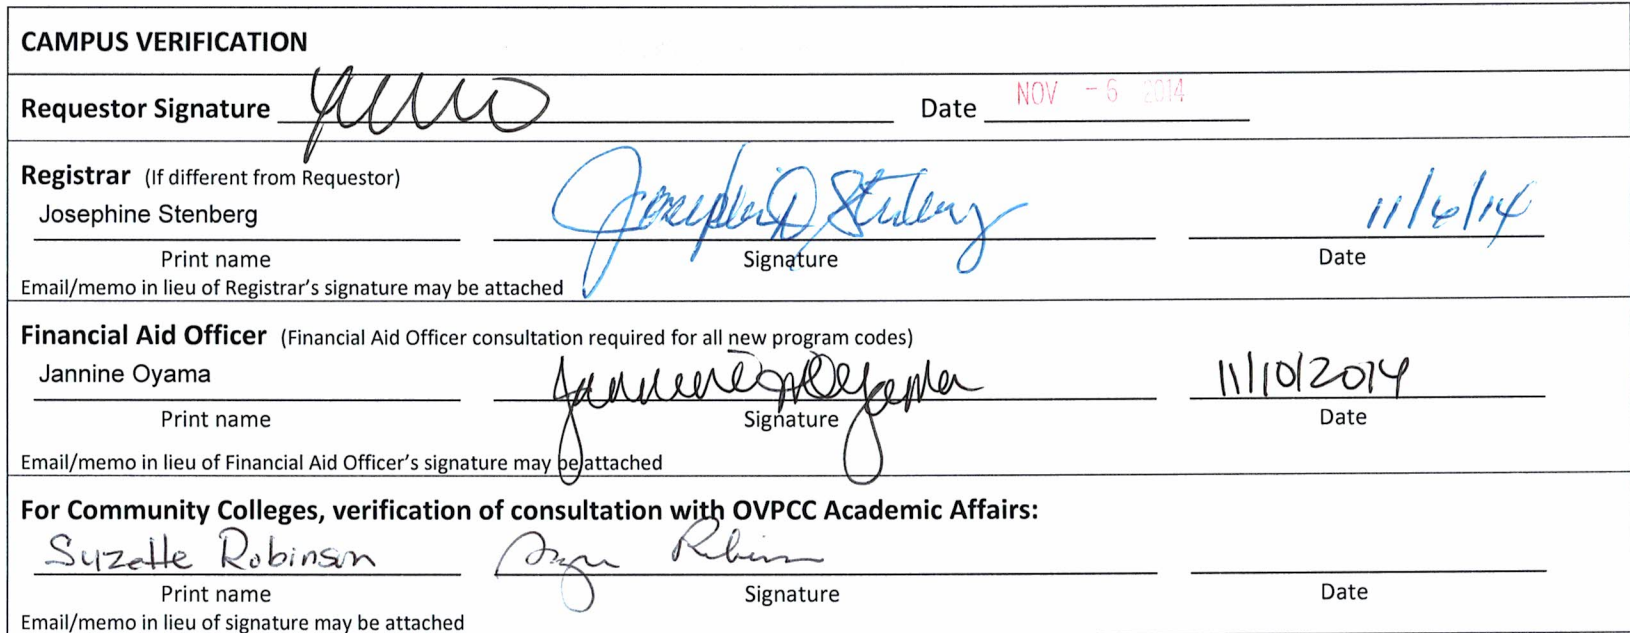 CAMPUS VERIFICATION
Requestor Signature Date NOV - 6 2014
Registrar (If different from Requestor)
Josephine Stenberg Josephine Stenberg 11/6/14
Print name Signature Date
Email/memo in lieu of Registrar's signature may be attached
Financial Aid Officer (Financial Aid Officer consultation required for all new program codes)
Jannine Oyama Jannine Oyama 11/10/2014
Print name Signature Date
Email/memo in lieu of Financial Aid Officer's signature may be attached
For Community Colleges, verification of consultation with OVPCC Academic Affairs:
Suzette Robinson
Print name Signature Date
Email/memo in lieu of signature may be attached